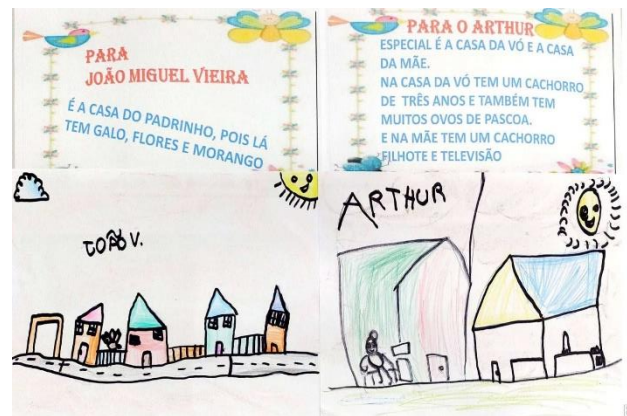 PARA
JOÃO MIGUEL VIEIRA
É A CASA DO PADRINHO, POIS LÁ
TEM GALO, FLORES E MORANGO
PARA O ARTHUR
ESPECIAL É A CASA DA VÓ E A CASA
DA MÃE.
NA CASA DA VÓ TEM UM CACHORRO
DE TRÊS ANOS E TAMBÉM TEM
MUITOS OVOS DE PASCOA.
E NA MÃE TEM UM CACHORRO
FILHOTE E TELEVISÃO
JOÃO V.
ARTHUR